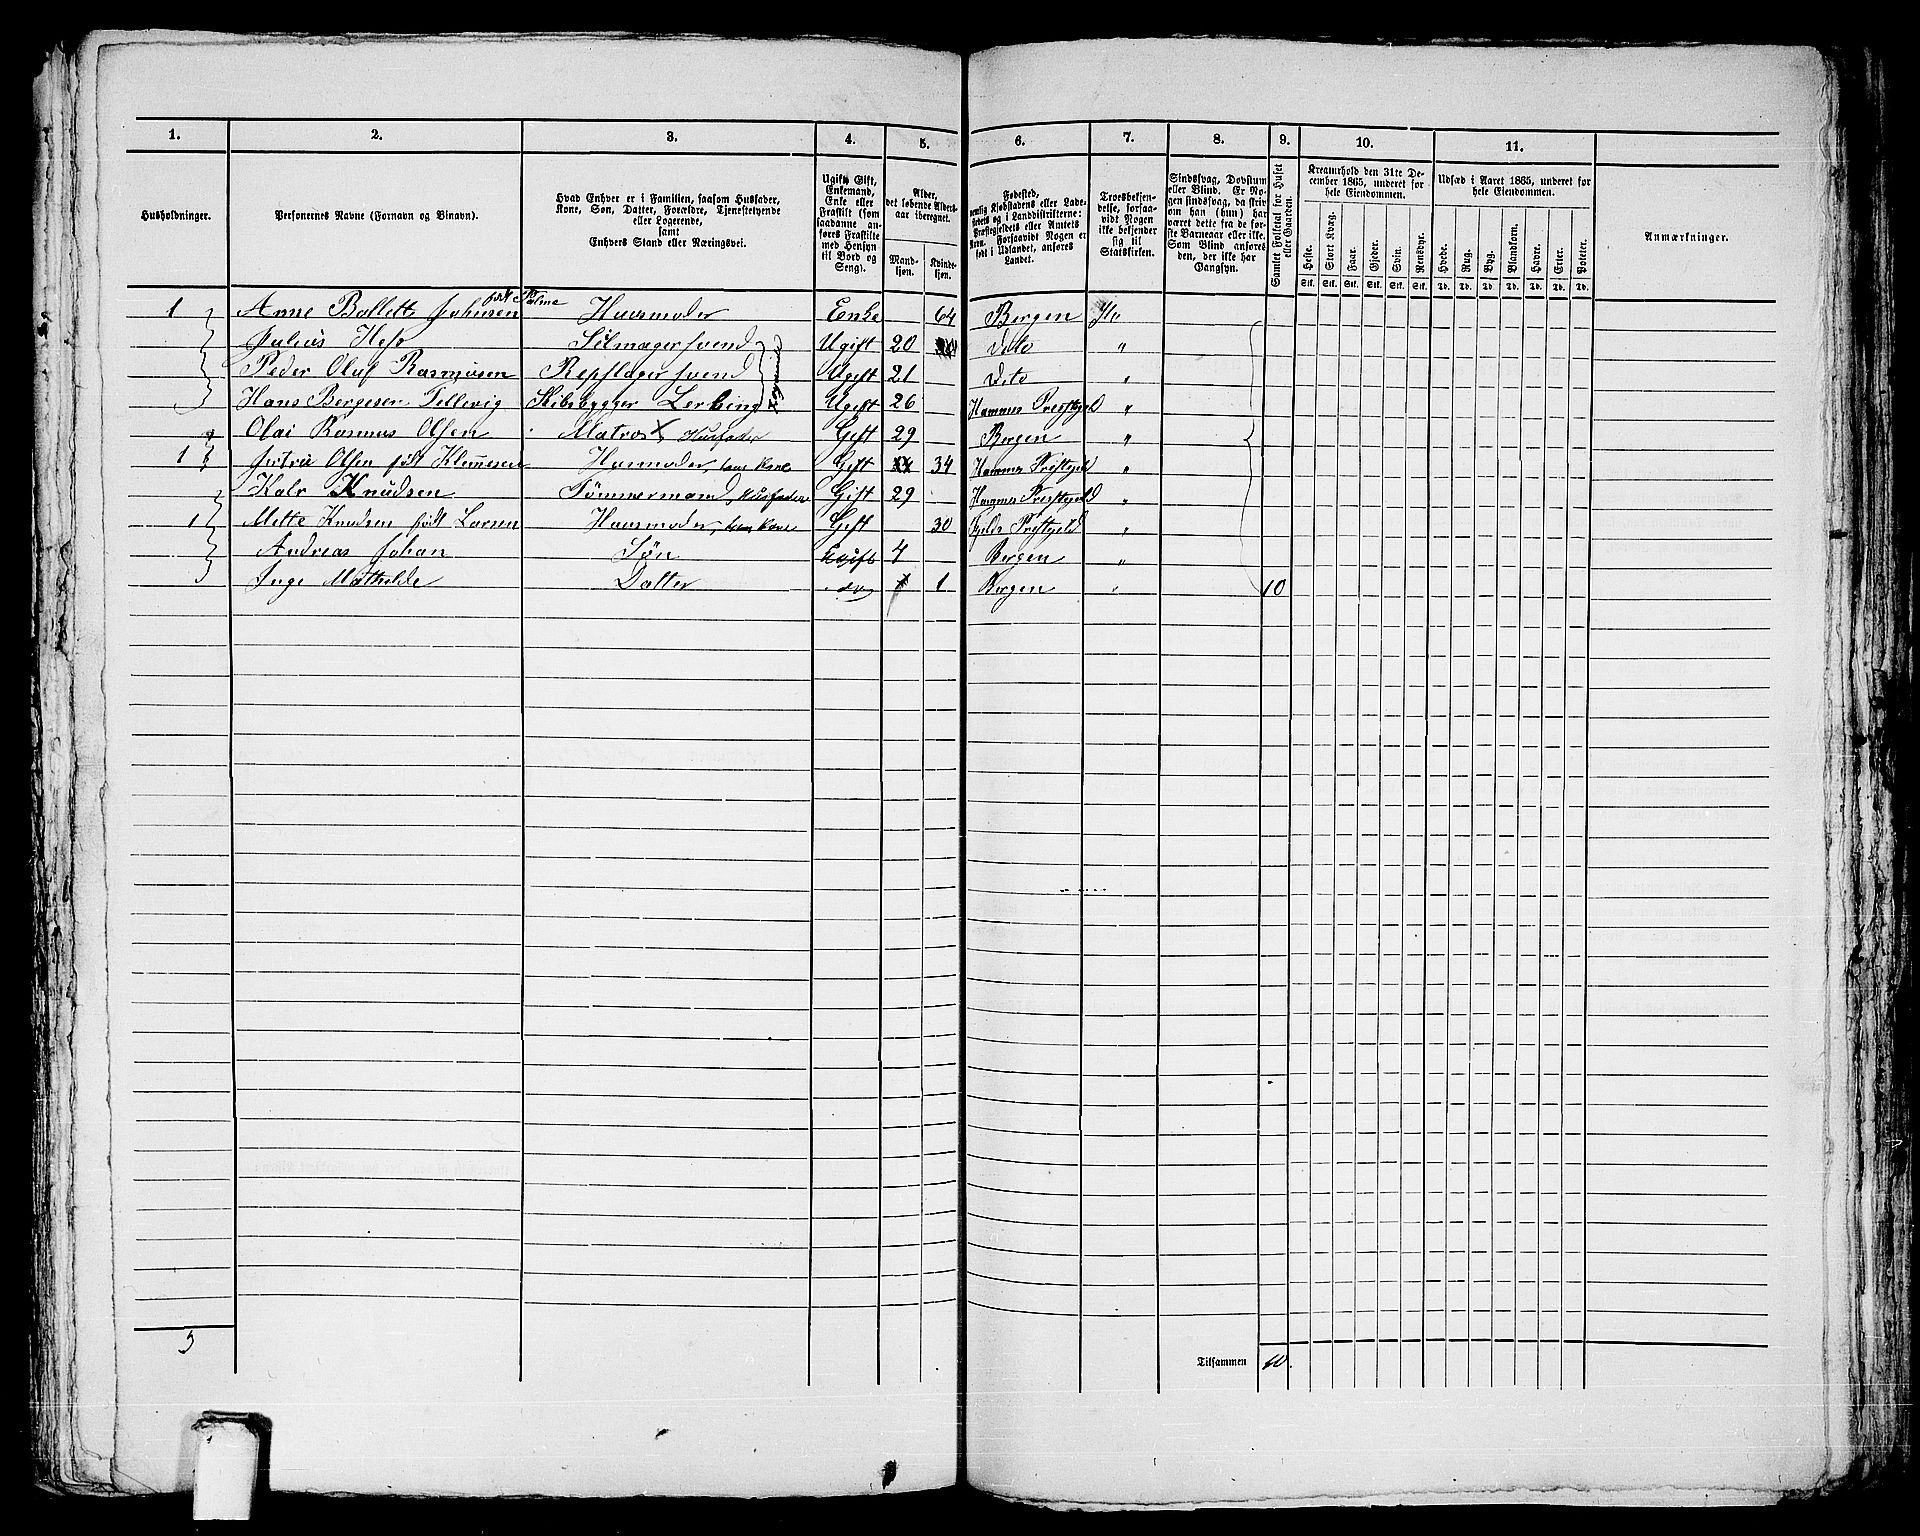 1. 2. 3. 4. 5. 6. 7. 8. 9. 10. 11.
Husholdninger.
Personernes Navne (Fornavn og Binavn).
Hvad Enhver er i Familien, saasom Husfader,
Kone, Søn, Datter, Forældre, Tjenestetyende
eller Logerende,
samt
Enhvers Stand eller Næringsvei.
Ugift, Gift,
Enkemand,
Enke eller
Fraskilt (som
saadanne an-
føres Fraskilte
med Hensyn
til Bord og
Seng).
Alder,
det løbende Alders-
aar iberegnet.
Mand-
kjøn.
Kvinde-
kjøn.
Fødested,
nemlig Kjøbstadens eller Lade-
stedets og i Landdistrikterne:
Præstegjeldets eller Amtets
Navn. Forsaavidt Nogen er
født i Udlandet, anføres
Landet.
Troesbekjen-
delse, forsaa-
vidt Nogen
ikke bekjender
sig til
Statskirken.
Sindssvag, Døvstum
eller Blind. Er No-
gen sindssvag, da skriv
om han (hun) har
været dette fra de før-
ste Barneaar eller ikke.
Som Blind anføres
den, der ikke har
Gangsyn.
Samlet Folketal for Huset
eller Gaarden.
Kreaturhold den 31te De-
cember 1865, underet for
hele Eiendommen.
Heste. Stort Kvæg. Faar. Gjeder. Svin. Rensdyr.
Stk. Stk. Stk. Stk. Stk. Stk.
Udsæd i Aaret 1865, underet for
hele Eiendommen.
Hvede. Rug. Byg. Blandkorn. Havre. Erter. Poteter.
Td. Td. Td. Td. Td. Td. Td.
Anmærkninger.
1 Anne Bollette Johnsen født Palme Huusmoder Enke 64 Bergen
Julius Hess Seilmagersvend Ugift 20 Deto "
Peder Oluf Rasmusen Repslagersvend Ugift 21 Deto "
Hans Bergesen Tellevig Skibsbygger Lerling Ugift 26 Hammer Prestgjeld "
Logerende
Olai Rasmus Olsen Matros Husfader Gift 29 Bergen "
1 Olsen født Klemesen Husmoder, hans Kone Gift 34 Hammer Prestgjeld "
Knudsen Tømmermand, Husfader Gift 29 Hammer Prestgjeld "
1 Mette Knudsen født Larsen Huusmoder, hans Kone Gift 30 Fjelds Prestgjeld "
Andreas Johan Søn Ugift 4 Bergen "
Inge Mathilde Datter do 1 Bergen " 10
3
Tilsammen 10.